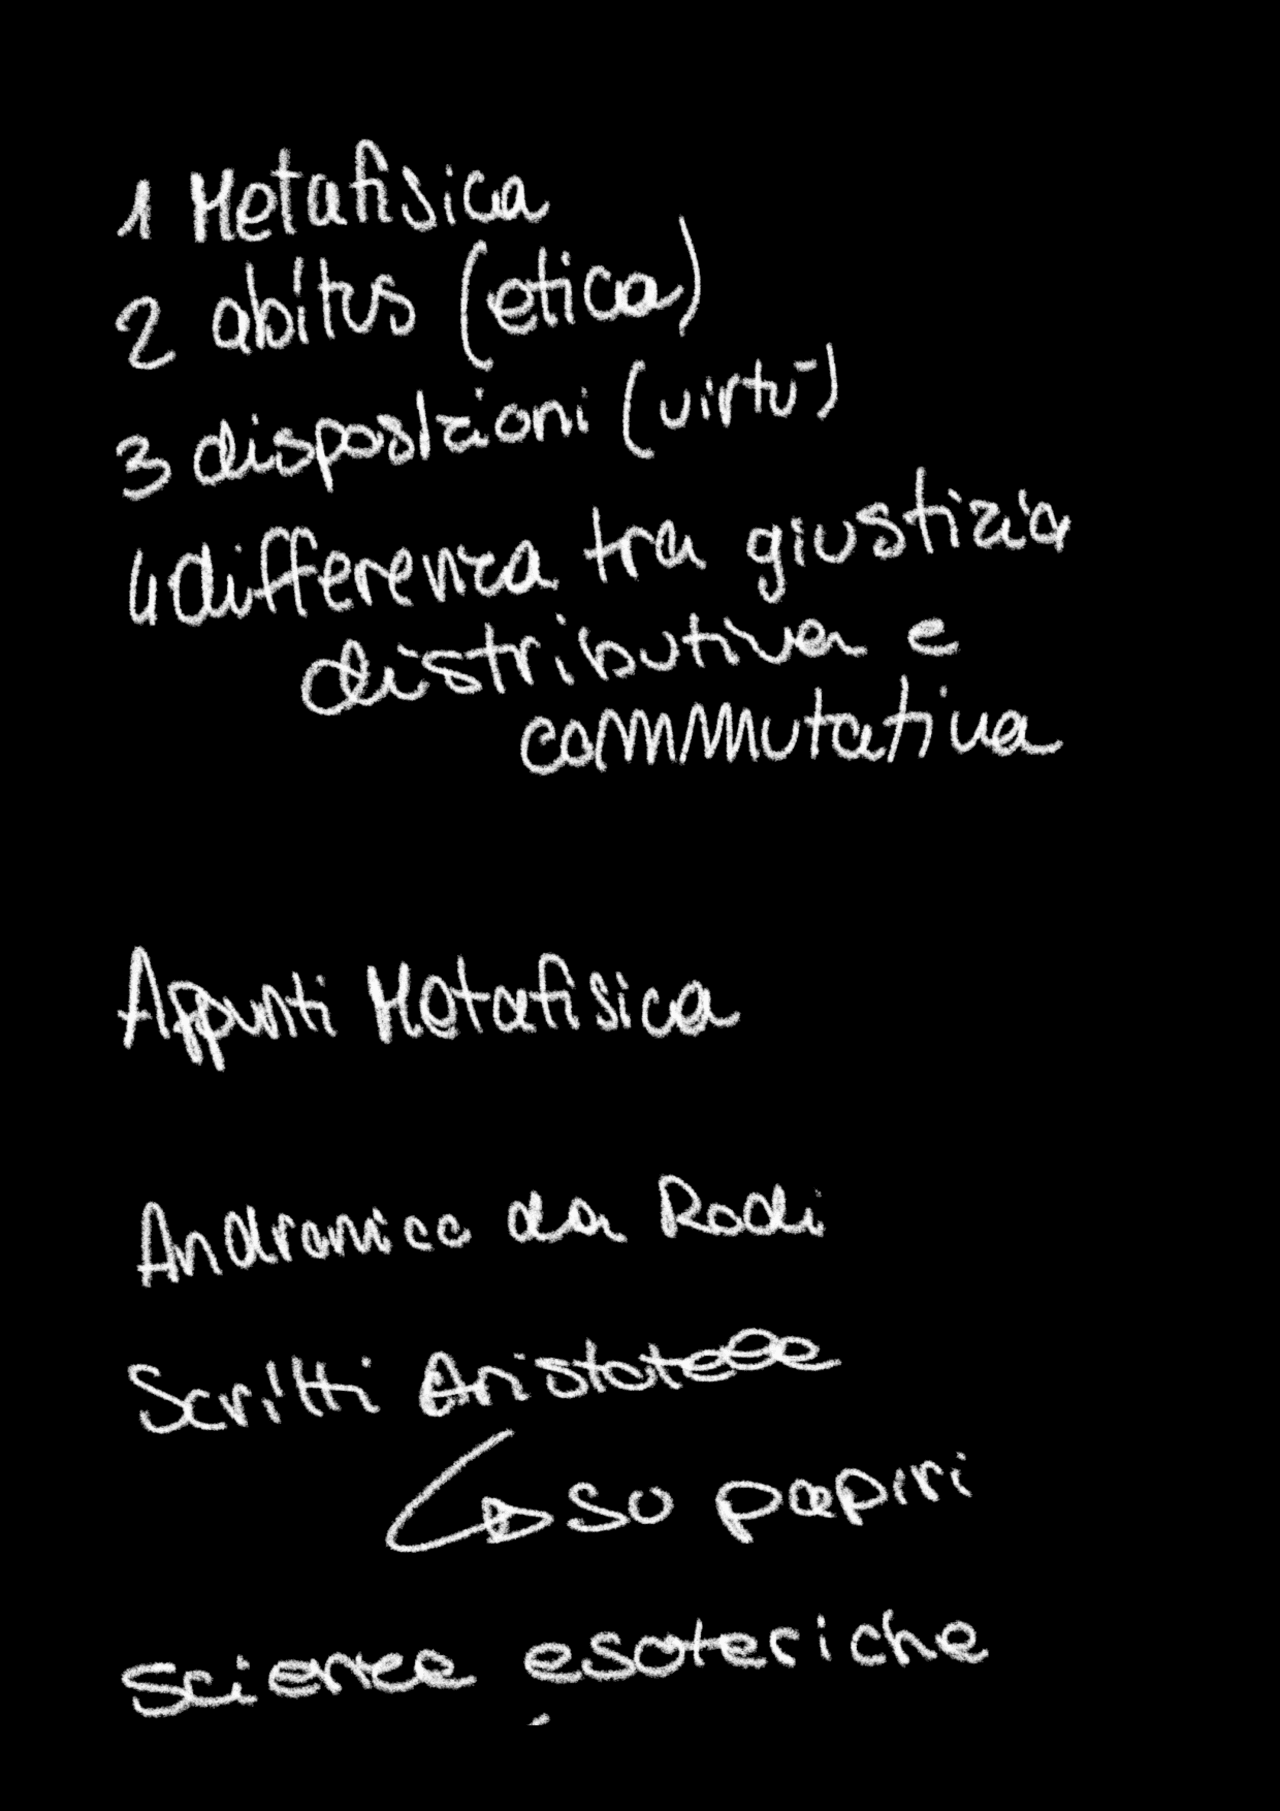 1 Metafisica
2 abitus (etica)
3 disposizioni (virtù)
4 differenza tra giustizia
distributiva e
commutativa
Appunti Metafisica
Andronico da Rodi
Scritti Aristotele
su papiri
scienze esoteriche